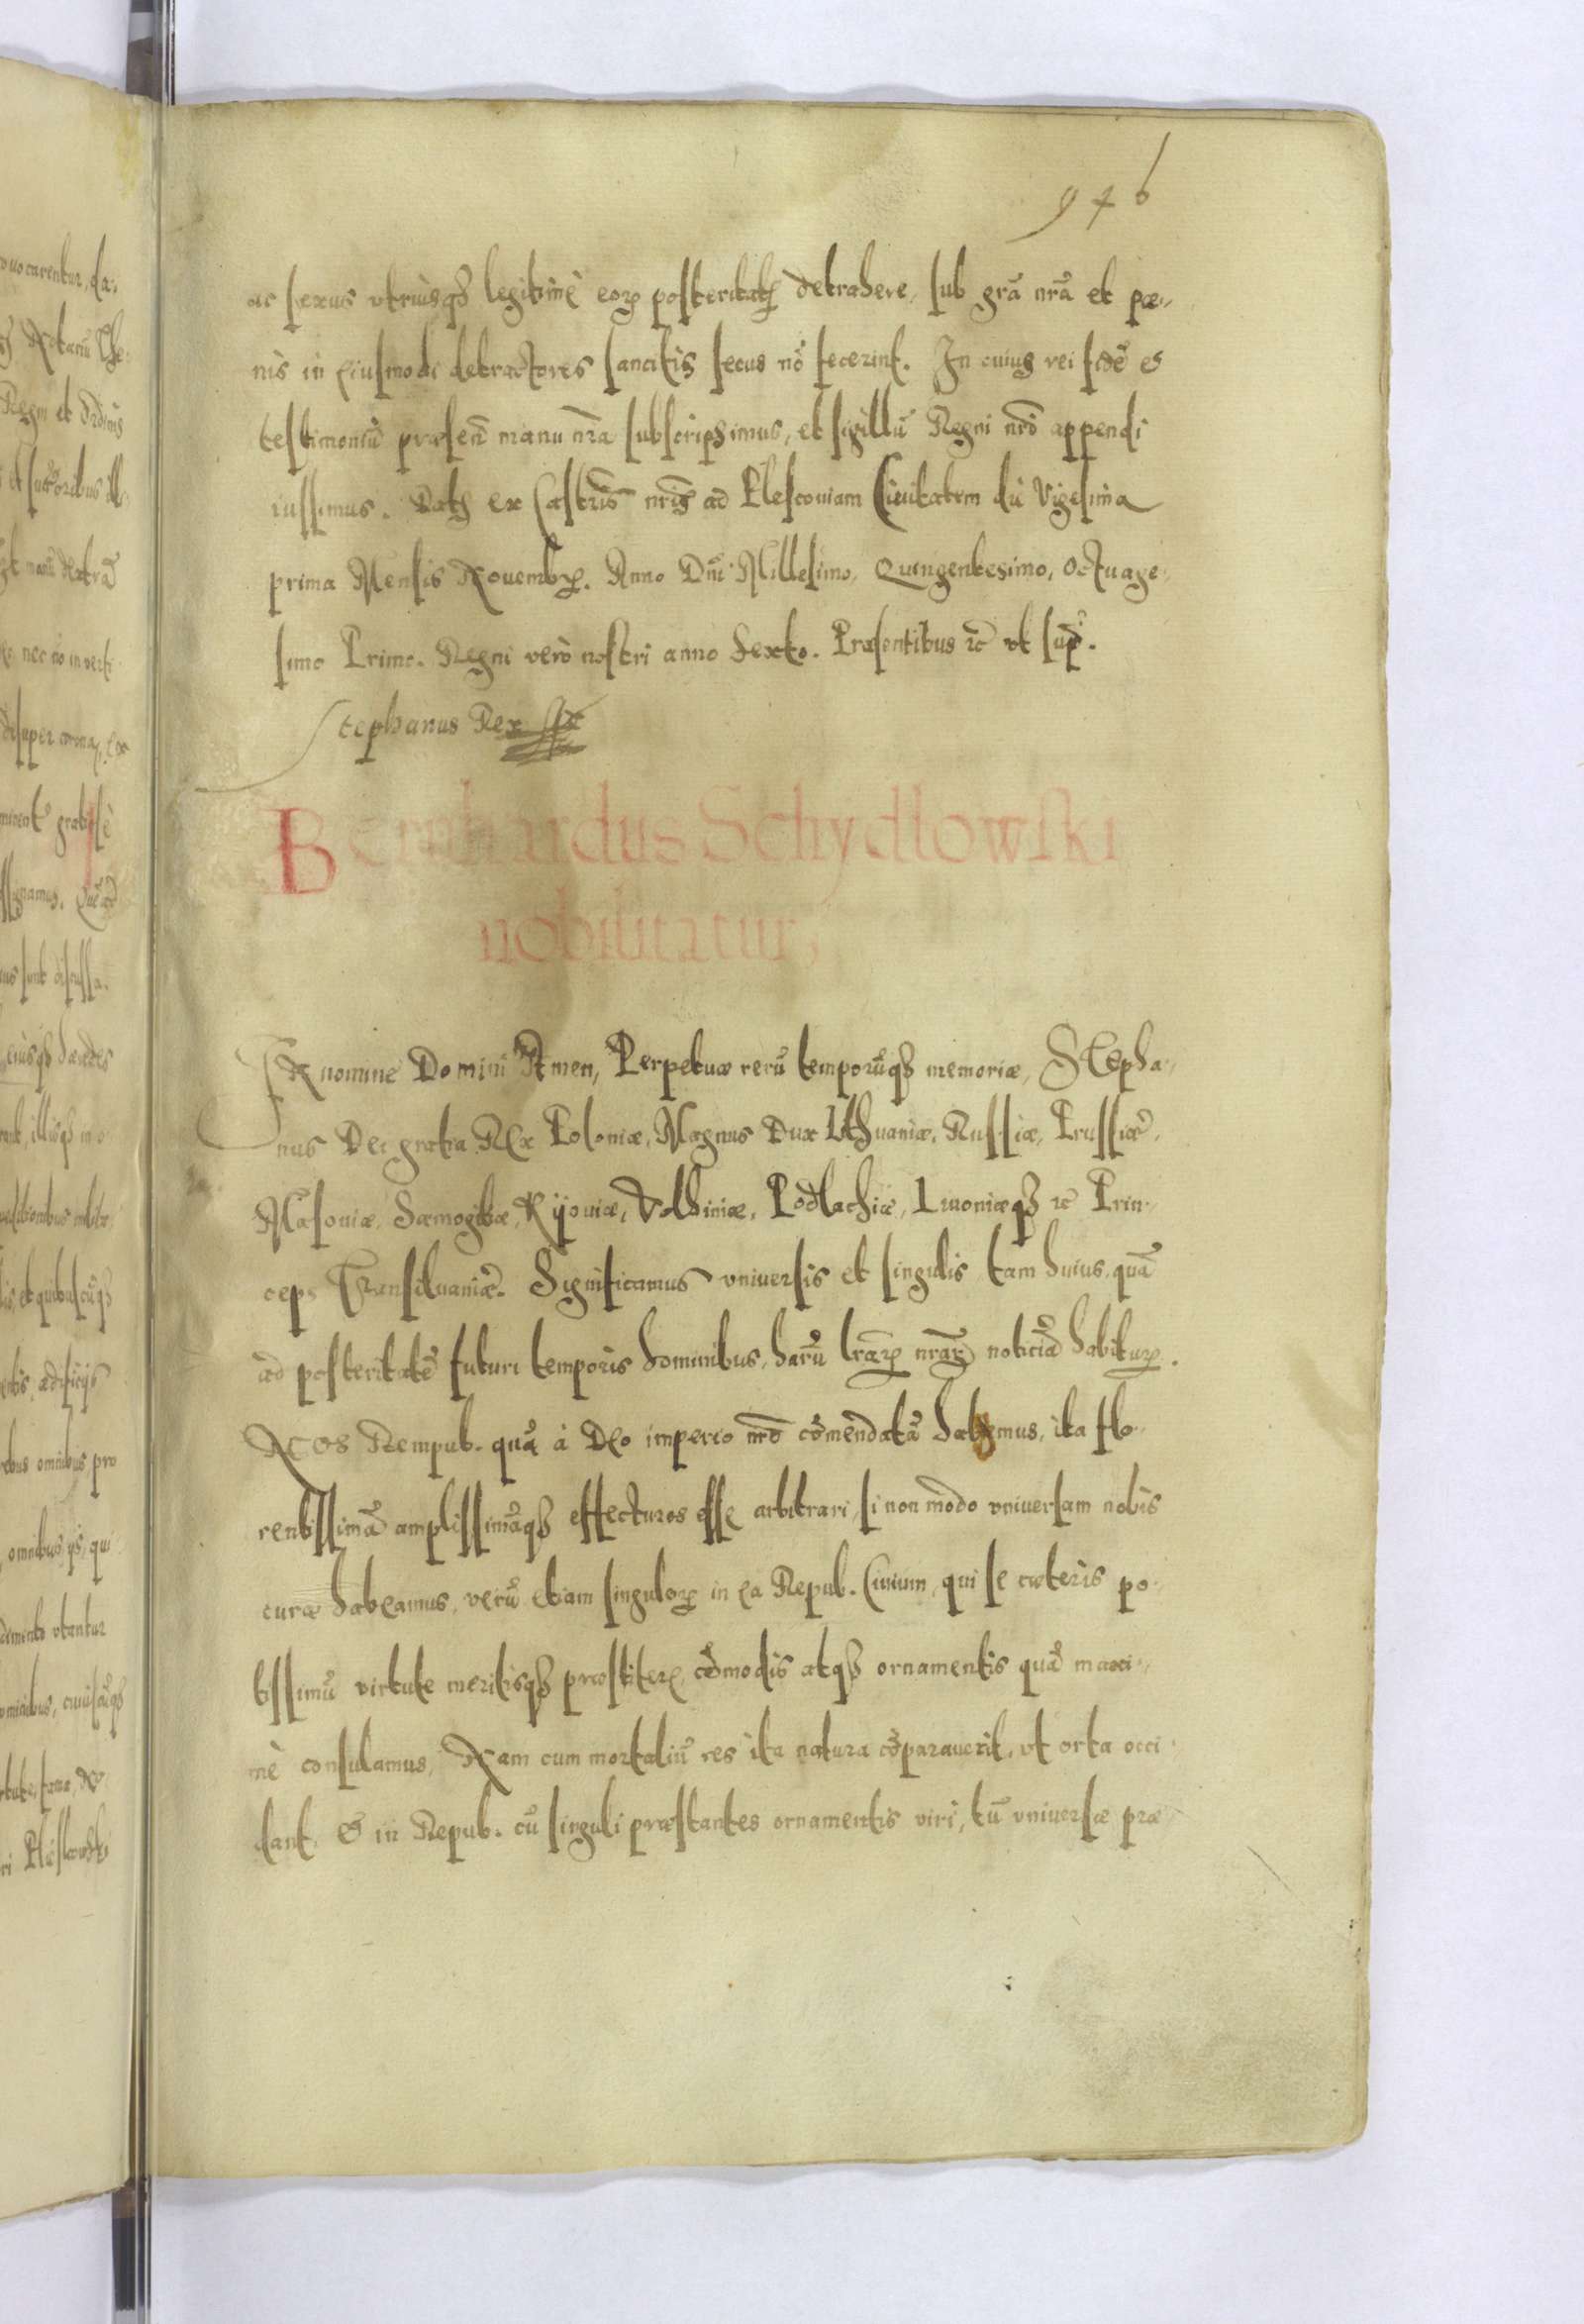 946
ac sexus vtriusq₃ legitimè eorꝫ posteritatj detrahere, sub grã nrã et pœ-
nis in eiusmodi detractores sancitis secus nõ fecerint. In cuius rei fidẽ et
testimoniũ præsen̄ manu nr̃a subscripsimus, et sigillũ Regni nrĩ appendi
iussimus. Datꝫ ex Castris nrĩs ad Plescouiam Ciuitatem die Vigesima
prima Mensis Nouembrꝫ. Anno Dnĩ Millesimo, Quingentesimo, Octuage-
simo Primo. Regni verò nostri anno Sexto. Præsentibus ꝛc̃ vt sup̃.
Stephanus Rex
Bernhardus Schydłowski
nobilitatur,
IN nomine Domini Amen, Perpetuæ rerũ temporũq₃ memoriæ, Stepha-
nus Dei gratia Rex Poloniæ, Magnus Dux Lithuaniæ, Russiæ, Prussiæ,
Masouiæ, Samogitiæ, Kijouiæ, Volhiniæ, Podlachiæ, Liuoniæq₃ ꝛc̃ Prin-
ceps Transiluaniæ. Significamus vniuersis et singulis tam huius, quã
ad posteritatẽ futuri temporis hominibus, harũ lr̃arꝫ nr̃arꝫ noticiã habiturꝫ.
Nos Rempub. quã à Deo imperio nrõ cõmendatã habemus, ita flo-
rentissimã amplissimãq₃ effecturos esse arbitrari, si non modo vniuersam nobis
curæ habeamus, verũ etiam singulorꝫ in ea Repub. Ciuium, qui se cæteris po-
tissimũ virtute meritisq₃ præstiterẽ, cõmodis atq₃ ornamentis quã maxi-
mè consulamus, Nam cum mortaliũ res ita natura cõparauerit, vt orta occi-
dant, et in Repub. cũ singuli præstantes ornamentis viri, tũ vniuersæ præ